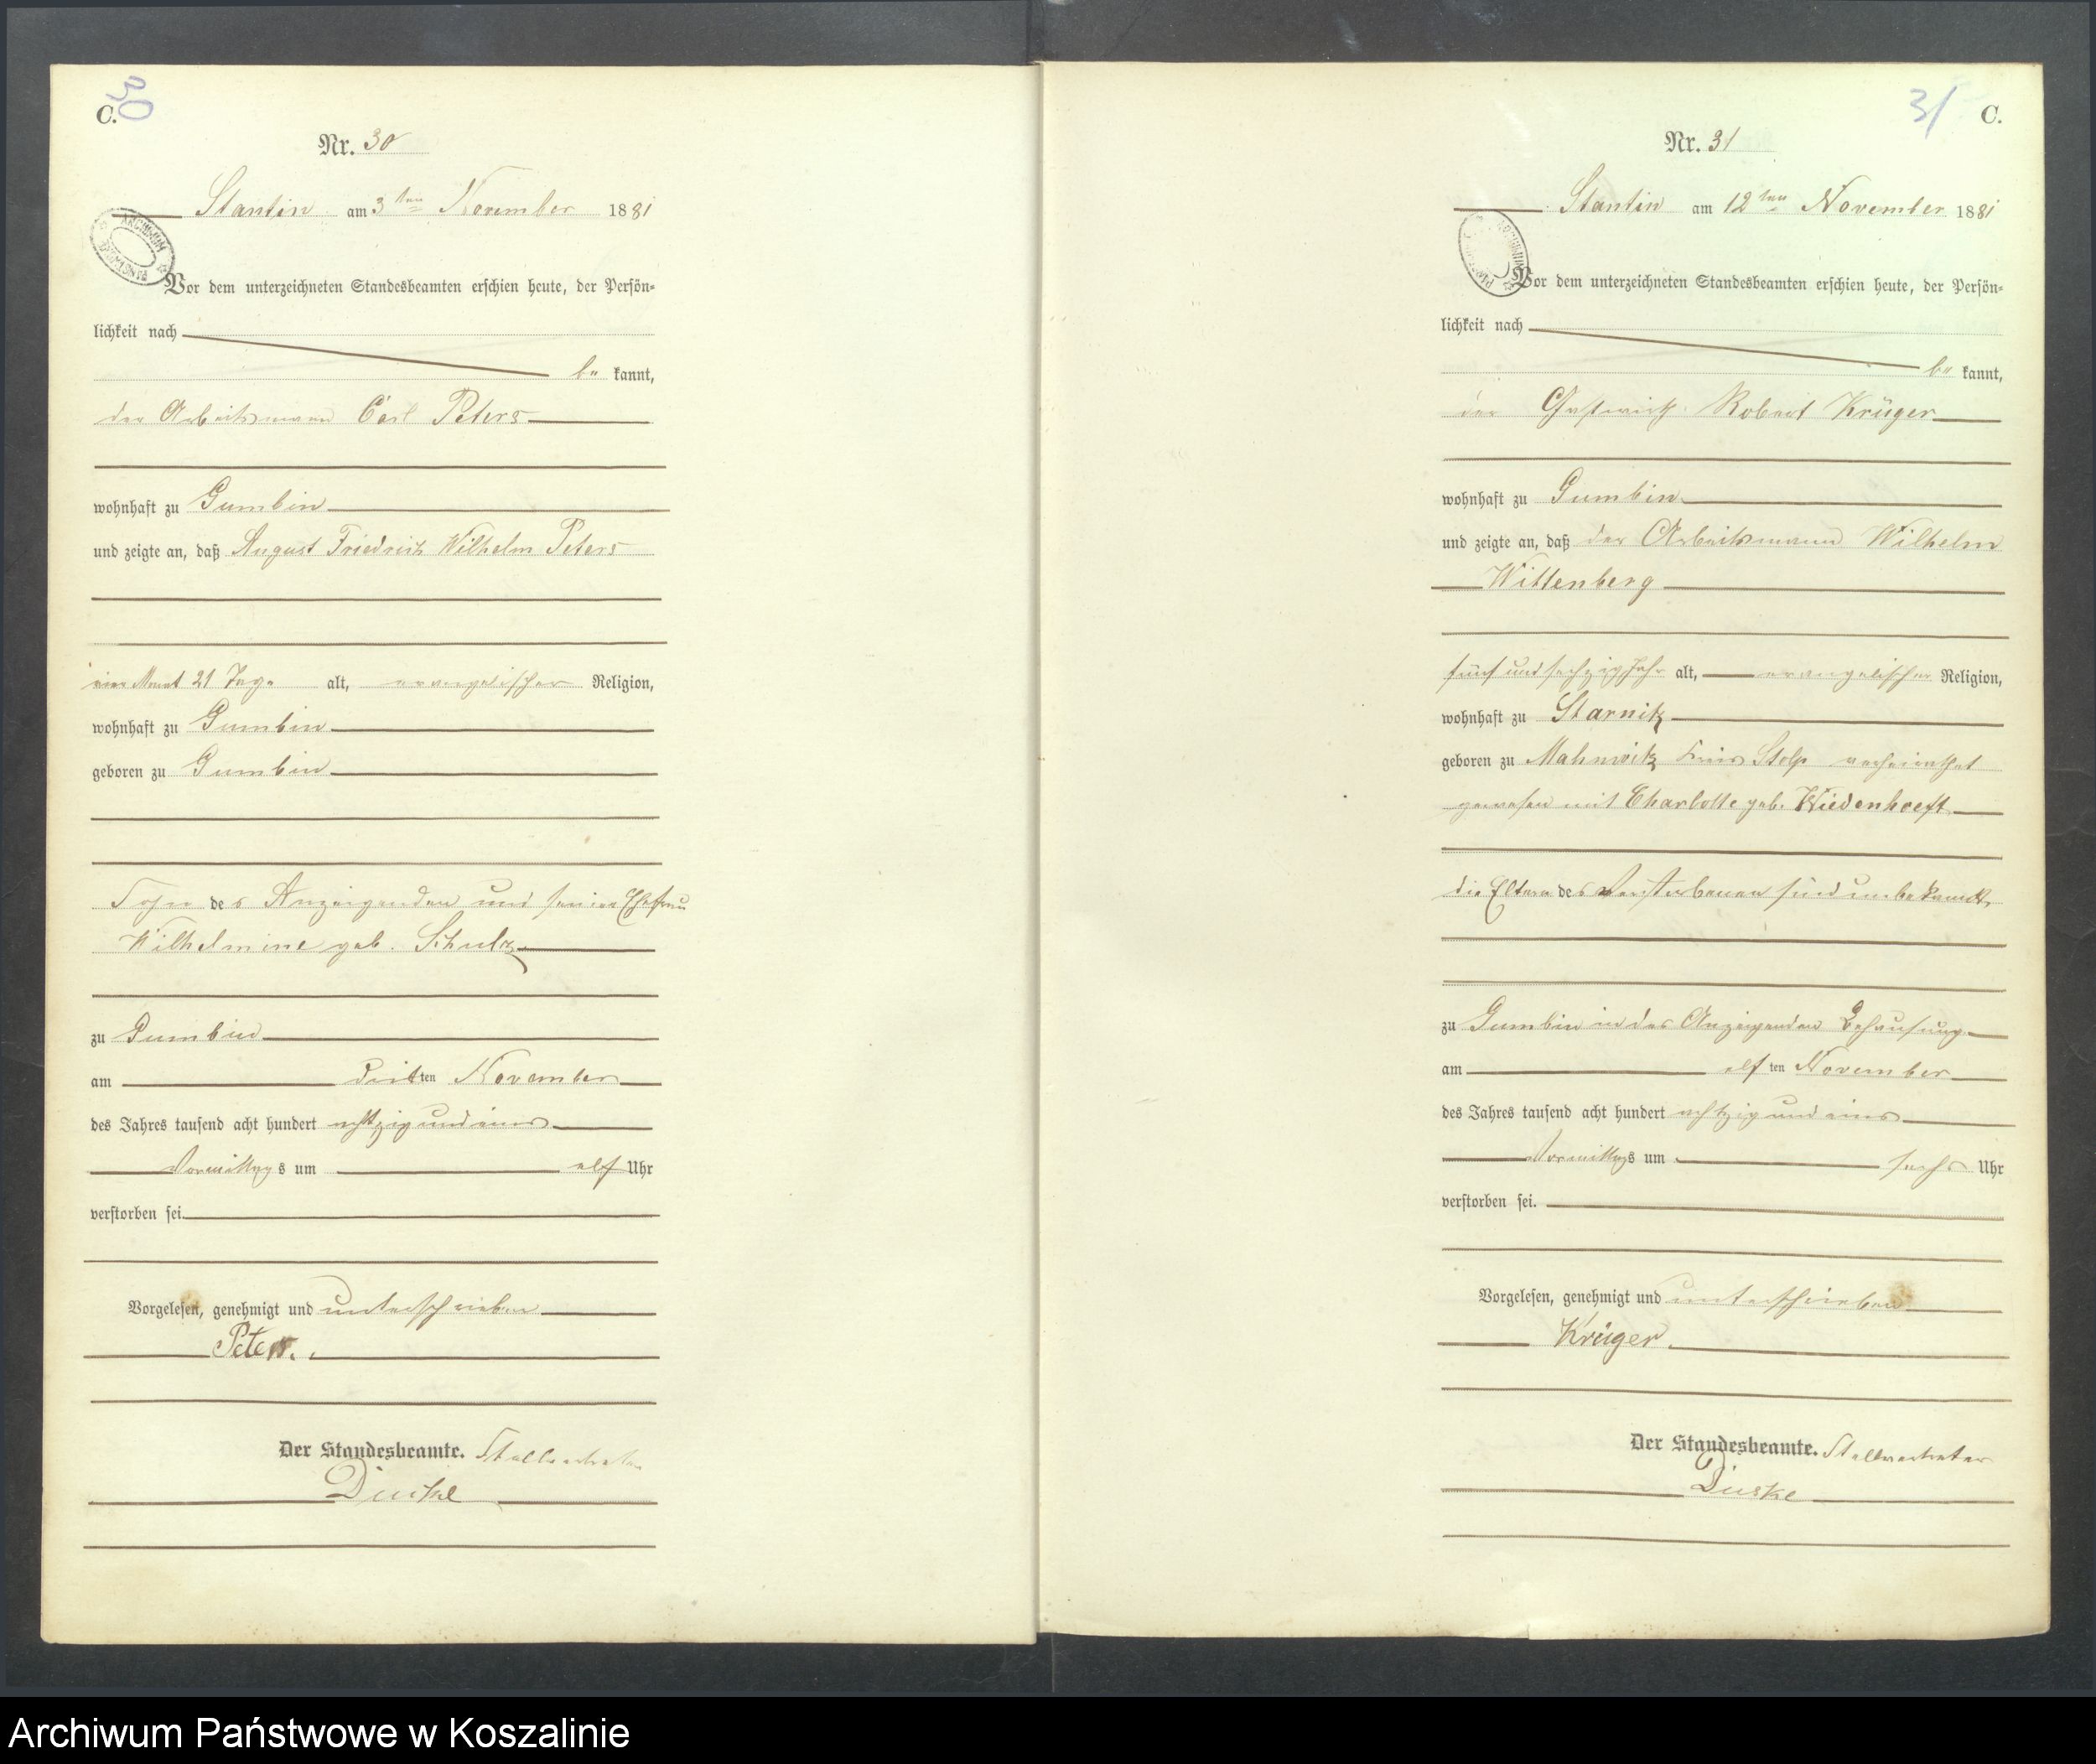 30
C.
Nr. 30
Stantin am 3ten November 1881
ARCHIWUM
Vor dem unterzeichneten Standesbeamten erschien heute, der Persön-
lichkeit nach
be kannt,
der Arbeitsmann Carl Peters
wohnhaft zu Gumbin
und zeigte an, daß August Friedrich Wilhelm Peters
ein Monat 21 Tage alt, evangelischer Religion,
wohnhaft zu Gumbin
geboren zu Gumbin
Sohn des Anzeigenden und seiner Ehefrau
Wilhelmine geb. Schulz
zu Gumbin
am dritten November
des Jahres tausend acht hundert achtzig und eins
Vormittags um elf Uhr
verstorben sei.
Vorgelesen, genehmigt und unterschrieben
Peters.
Der Standesbeamte. Stellvertreter
31
C.
Nr. 31
Stantin am 12ten November 1881
Vor dem unterzeichneten Standesbeamten erschien heute, der Persön-
lichkeit nach
be kannt,
der Gastwirth Robert Krüger
wohnhaft zu Gumbin
und zeigte an, daß der Arbeitsmann Wilhelm
Wittenberg
fünf und sechzig Jahr alt, evangelischer Religion,
wohnhaft zu Starnitz
geboren zu Mahnwitz Kreis Stolp verheirathet
gewesen mit Charlotte geb. Wiedenhoeft
die Eltern des Verstorbenen sind unbekannt
zu Gumbin in des Anzeigenden Behausung
am elften November
des Jahres tausend acht hundert achtzig und eins
Vormittags um sechs Uhr
verstorben sei.
Vorgelesen, genehmigt und unterschrieben
Krüger.
Der Standesbeamte. Stellvertreter
Duske
Archiwum Państwowe w Koszalinie